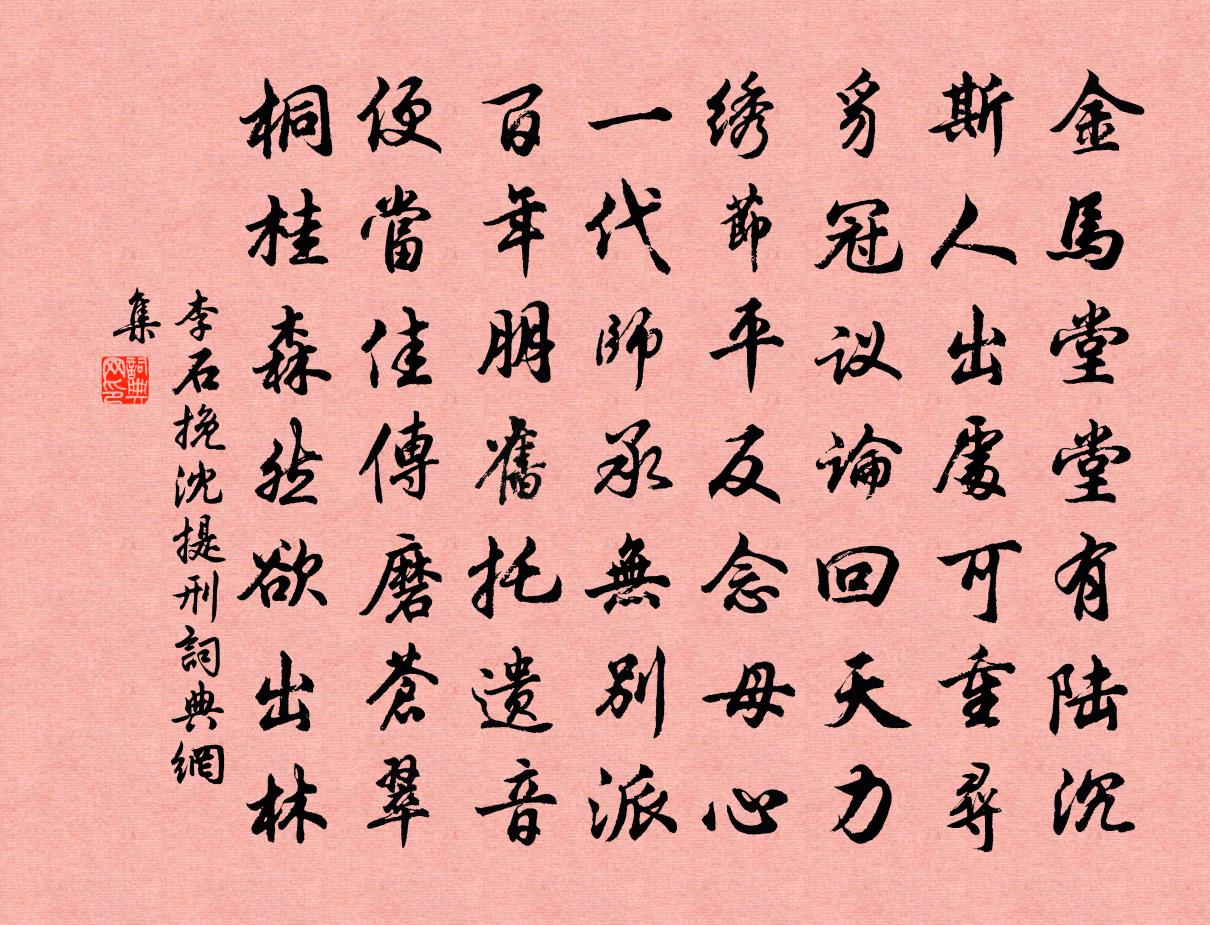 金馬堂堂有陆沉
斯人出處可重尋
豸冠议論回天力
绣節平反念母心
一代師承無別派
百年朋舊托遗音
便當佳傳磨蒼翠
桐桂森然欲出林
李石挽沈提刑詞典網
集
詞典
网印